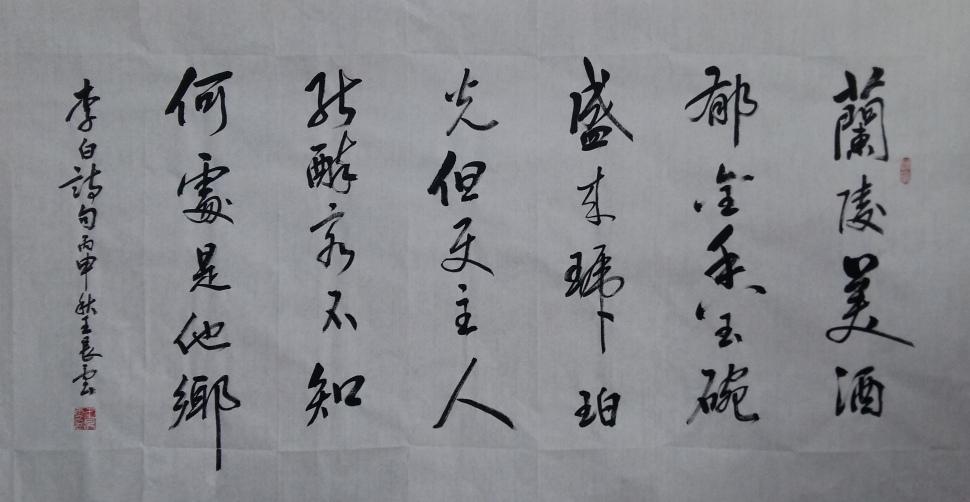 蘭陵美酒
郁金香玉碗
盛来琥珀
光但使主人
能醉客不知
何處是他鄉
李白詩句丙申秋王長雲